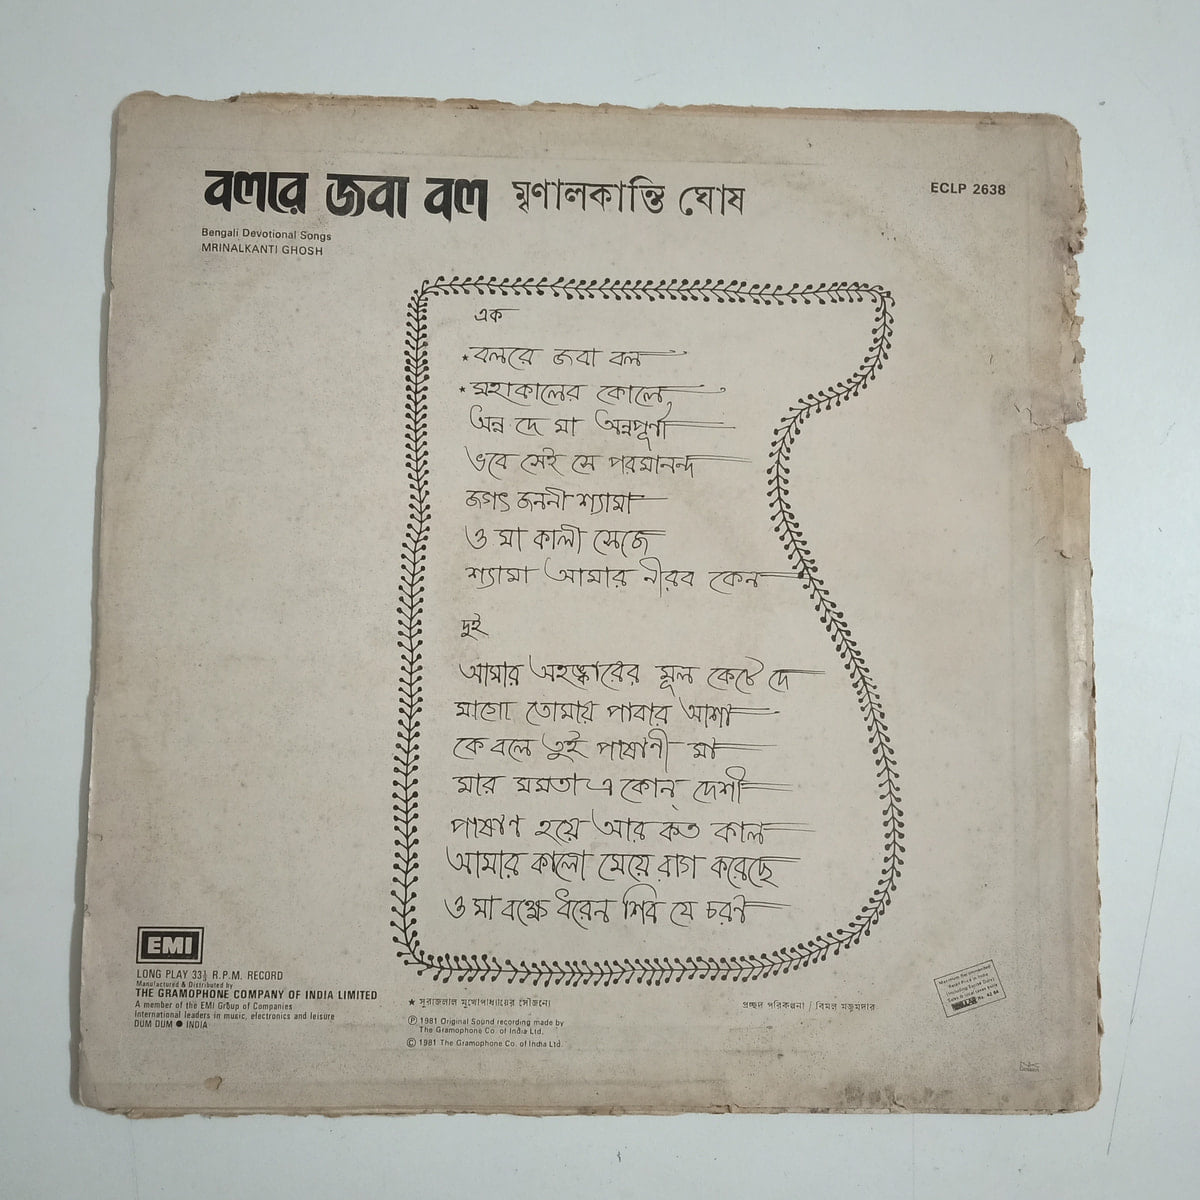 বলরে জবা বল মৃণালকান্তি ঘোষ
ECLP 2638
Bengali Devotional Songs
MRINALKANTI GHOSH
এক
★ বলরে জবা বল
★ মহাকালের কোলে
অন্ন দে মা অন্নপূর্ণা
ভবে সেই সে পরমানন্দ
জগৎ জননী শ্যামা
ও মা কালী সেজে
শ্যামা আমার নীরব কেন
দুই
আমার অহঙ্কারের মূল কেটে দে
মাগো তোমায় পাবার আশা
কে বলে তুই পাষাণী মা
মার মমতা এ কোন্ দেশী
পাষাণ হয়ে আর কত কাল
আমার কালো মেয়ে রাগ করেছে
ও মা বক্ষে ধরেন শিব যে চরণ
EMI
LONG PLAY 33⅓ R.P.M. RECORD
Manufactured & Distributed by
THE GRAMOPHONE COMPANY OF INDIA LIMITED
A member of the EMI Group of Companies
International leaders in music, electronics and leisure
DUM DUM ● INDIA
★ সুরাজলাল মুখোপাধ্যায়ের সৌজন্যে
Ⓟ 1981 Original Sound recording made by
The Gramophone Co. of India Ltd.
© 1981 The Gramophone Co. of India Ltd.
প্রচ্ছদ পরিকল্পনা / বিমল মজুমদার
Maximum Recommended